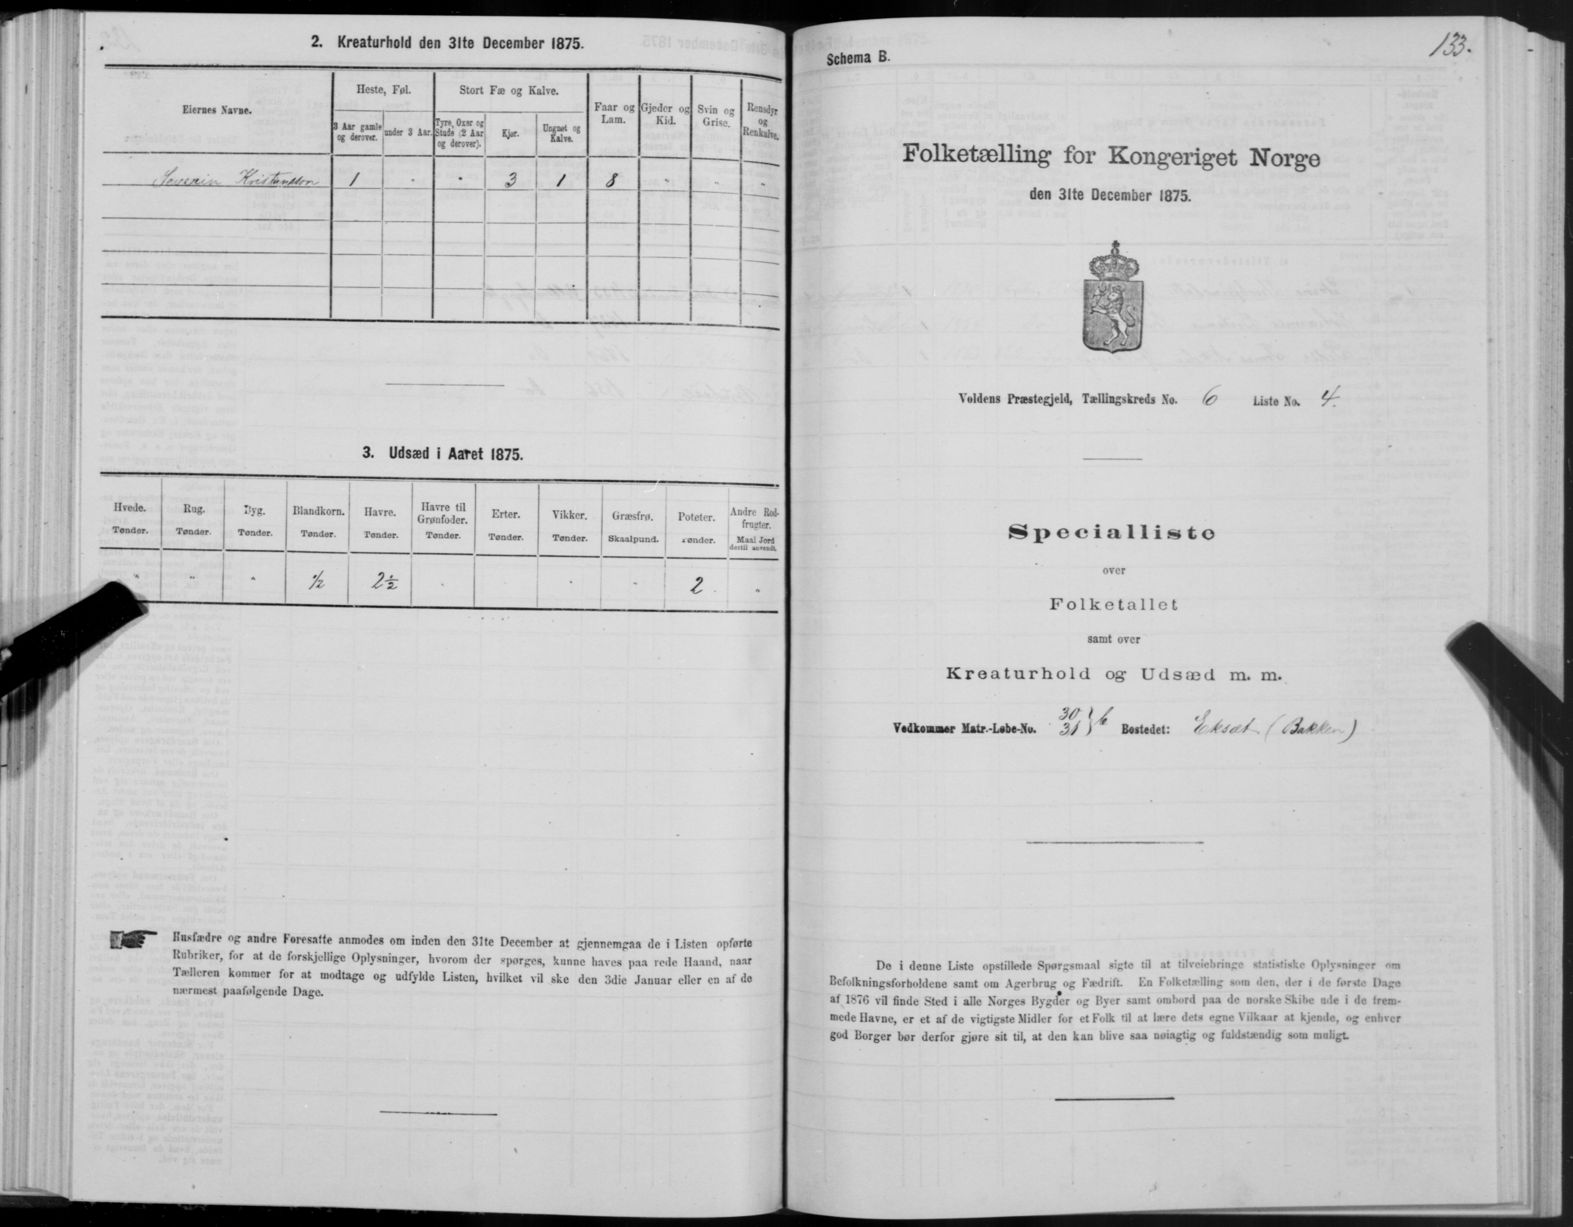 2. Kreaturhold den 31te December 1875.
Eiernes Navne.
Heste, Føl.
Stort Fæ og Kalve.
Faar og Lam.
Gjeder og Kid.
Svin og Grise.
Rensdyr og Renkalve.
3 Aar gamle og derover.
under 3 Aar.
Tyre, Oxer og Stude (2 Aar og derover).
Kjør.
Ungnøt og Kalve.
Severin Kristensson 1 " " 3 1 8 " " "
3. Udsæd i Aaret 1875.
Hvede. Rug. Byg. Blandkorn. Havre. Havre til Grønfoder. Erter. Vikker. Græsfrø. Poteter. Andre Rodfrugter.
Tønder. Tønder. Tønder. Tønder. Tønder. Tønder. Tønder. Tønder. Skaalpund. Tønder. Maal Jord dertil anvendt.
" " " ½ 2½ " " " 2 "
Husfædre og andre Foresatte anmodes om inden den 31te December at gjennemgaa de i Listen opførte
Rubriker, for at de forskjellige Oplysninger, hvorom der spørges, kunne haves paa rede Haand, naar
Tælleren kommer for at modtage og udfylde Listen, hvilket vil ske den 3die Januar eller en af de
nærmest paafølgende Dage.
133.
Schema B.
Folketælling for Kongeriget Norge
den 31te December 1875.
Voldens Præstegjeld, Tællingskreds No. 6 Liste No. 4.
Specialliste
over
Folketallet
samt over
Kreaturhold og Udsæd m. m.
Vedkommer Matr.-Løbe-No. 30 31 } b Bostedet: Eksæt (Bakken)
De i denne Liste opstillede Spørgsmaal sigte til at tilveiebringe statistiske Oplysninger om
Befolkningsforholdene samt om Agerbrug og Fædrift. En Folketælling som den, der i de første Dage
af 1876 vil finde Sted i alle Norges Bygder og Byer samt ombord paa de norske Skibe ude i de frem-
mede Havne, er et af de vigtigste Midler for et Folk til at lære dets egne Vilkaar at kjende, og enhver
god Borger bør derfor gjøre sit til, at den kan blive saa nøiagtig og fuldstændig som muligt.